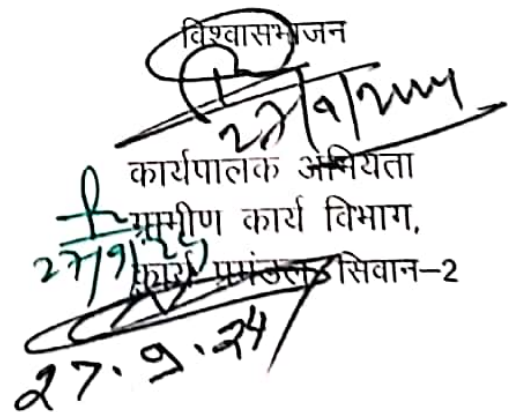 विश्वासभाजन
27/9/2024
कार्यपालक अभियंता
ग्रामीण कार्य विभाग,
27/9/24
कार्य प्रमंडल सिवान-2
27.9.24